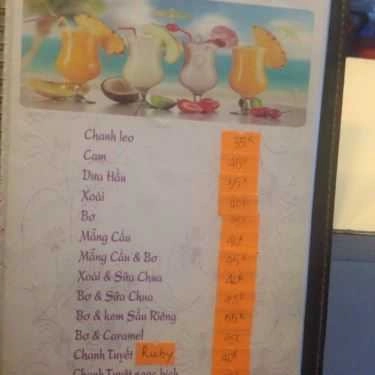 Chanh leo 35K
Cam 40K
Dưa Hấu 35K
Xoài 40K
Bơ
Mãng Cầu
Mãng Cầu & Bơ 45K
Xoài & Sữa Chua
Bơ & Sữa Chua 45K
Bơ & kem Sầu Riêng 55K
Bơ & Caramel
Chanh Tuyết Ricky 40K
Chanh Tuyết ngọc bích